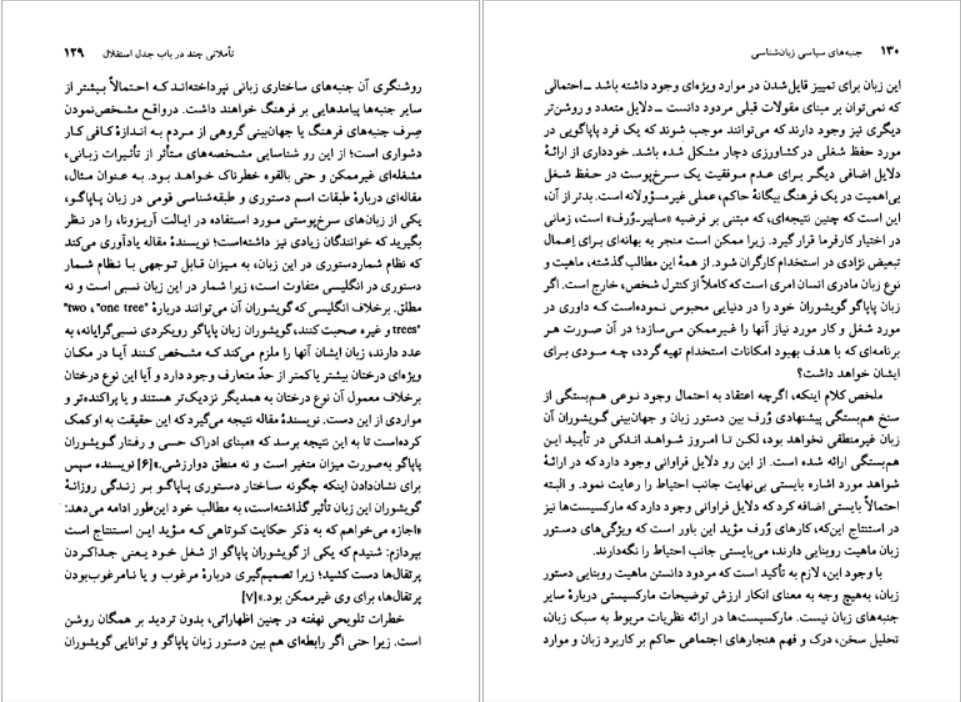 تأملاتی چند در باب جدل استقلال ۱۲۹
روشنگری آن جنبه‌های ساختاری زبانی نپرداخته‌اند که احتمالاً بیشتر از
سایر جنبه‌ها پیامدهایی بر فرهنگ خواهند داشت. درواقع مشخص‌نمودن
صِرف جنبه‌های فرهنگ یا جهان‌بینی گروهی از مردم به اندازهٔ کافی کار
دشواری است؛ از این رو شناسایی مشخصه‌های متأثر از تأثیرات زبانی،
مشغله‌ای غیرممکن و حتی بالقوه خطرناک خواهد بود. به عنوان مثال،
مقاله‌ای دربارهٔ طبقات اسم دستوری و طبقه‌شناسی قومی در زبان پاپاگو،
یکی از زبان‌های سرخ‌پوستی مورد استفاده در ایالت آریزونا، را در نظر
بگیرید که خوانندگان زیادی نیز داشته‌است؛ نویسندهٔ مقاله یادآوری می‌کند
که نظام شماردستوری در این زبان، به میزان قابل توجهی با نظام شمار
دستوری در انگلیسی متفاوت است، زیرا شمار در این زبان نسبی است و نه
مطلق. برخلاف انگلیسی که گویشوران آن می‌توانند دربارهٔ "one tree"، "two
trees" و غیره صحبت کنند، گویشوران زبان پاپاگو رویکردی نسبی‌گرایانه، به
عدد دارند، زبان ایشان آنها را ملزم می‌کند که مشخص کنند آیا در مکان
ویژه‌ای درختان بیشتر یا کمتر از حدّ متعارف وجود دارد و آیا این نوع درختان
برخلاف معمول آن نوع درختان به همدیگر نزدیک‌تر هستند و یا پراکنده‌تر و
مواردی از این دست. نویسندهٔ مقاله نتیجه می‌گیرد که این حقیقت به او کمک
کرده‌است تا به این نتیجه برسد که «مبنای ادراک حسی و رفتار گویشوران
پاپاگو به‌صورت میزان متغیر است و نه منطق دوارزشی.»[۶] نویسنده سپس
برای نشان‌دادن اینکه چگونه ساختار دستوری پاپاگو بر زندگی روزانهٔ
گویشوران این زبان تأثیر گذاشته‌است، به مطالب خود این‌طور ادامه می‌دهد:
«اجازه می‌خواهم که به ذکر حکایت کوتاهی که مؤید این استنتاج است
بپردازم: شنیدم که یکی از گویشوران پاپاگو از شغل خود یعنی جداکردن
پرتقال‌ها دست کشید؛ زیرا تصمیم‌گیری دربارهٔ مرغوب و یا نامرغوب‌بودن
پرتقال‌ها، برای وی غیرممکن بود.»[۷]
خطرات تلویحی نهفته در چنین اظهاراتی، بدون تردید بر همگان روشن
است. زیرا حتی اگر رابطه‌ای هم بین دستور زبان پاپاگو و توانایی گویشوران
۱۳۰ جنبه‌های سیاسی زبان‌شناسی
این زبان برای تمییز قایل‌شدن در موارد ویژه‌ای وجود داشته باشد ــ احتمالی
که نمی‌توان بر مبنای مقولات قبلی مردود دانست ــ دلایل متعدد و روشن‌تر
دیگری نیز وجود دارند که می‌توانند موجب شوند که یک فرد پاپاگویی در
مورد حفظ شغلی در کشاورزی دچار مشکل شده باشد. خودداری از ارائهٔ
دلایل اضافی دیگر برای عدم موفقیت یک سرخ‌پوست در حفظ شغل
بی‌اهمیت در یک فرهنگ بیگانهٔ حاکم، عملی غیرمسؤولانه است. بدتر از آن،
این است که چنین نتیجه‌ای، که مبتنی بر فرضیه «ساپیر-وُرف» است، زمانی
در اختیار کارفرما قرار گیرد. زیرا ممکن است منجر به بهانه‌ای برای اِعمال
تبعیض نژادی در استخدام کارگران شود. از همهٔ این مطالب گذشته، ماهیت و
نوع زبان مادری انسان امری است که کاملاً از کنترل شخص، خارج است. اگر
زبان پاپاگو گویشوران خود را در دنیایی محبوس نموده‌است که داوری در
مورد شغل و کار مورد نیاز آنها را غیرممکن می‌سازد؛ در آن صورت هر
برنامه‌ای که با هدف بهبود امکانات استخدام تهیه گردد، چه سودی برای
ایشان خواهد داشت؟
ملخص کلام اینکه، اگرچه اعتقاد به احتمال وجود نوعی هم‌بستگی از
سنخ هم‌بستگی پیشنهادی وُرف بین دستور زبان و جهان‌بینی گویشوران آن
زبان غیرمنطقی نخواهد بود، لکن تا امروز شواهد اندکی در تأیید این
هم‌بستگی ارائه شده است. از این رو دلایل فراوانی وجود دارد که در ارائهٔ
شواهد مورد اشاره بایستی بی‌نهایت جانب احتیاط را رعایت نمود. و البته
احتمالاً بایستی اضافه کرد که دلایل فراوانی وجود دارد که مارکسیست‌ها نیز
در استنتاج این‌که، کارهای وُرف مؤید این باور است که ویژگی‌های دستور
زبان ماهیت روبنایی دارند، می‌بایستی جانب احتیاط را نگه‌دارند.
با وجود این، لازم به تأکید است که مردود دانستن ماهیت روبنایی دستور
زبان، به‌هیچ وجه به معنای انکار ارزش توضیحات مارکسیستی دربارهٔ سایر
جنبه‌های زبان نیست. مارکسیست‌ها در ارائه نظریات مربوط به سبک زبان،
تحلیل سخن، درک و فهم هنجارهای اجتماعی حاکم بر کاربرد زبان و موارد